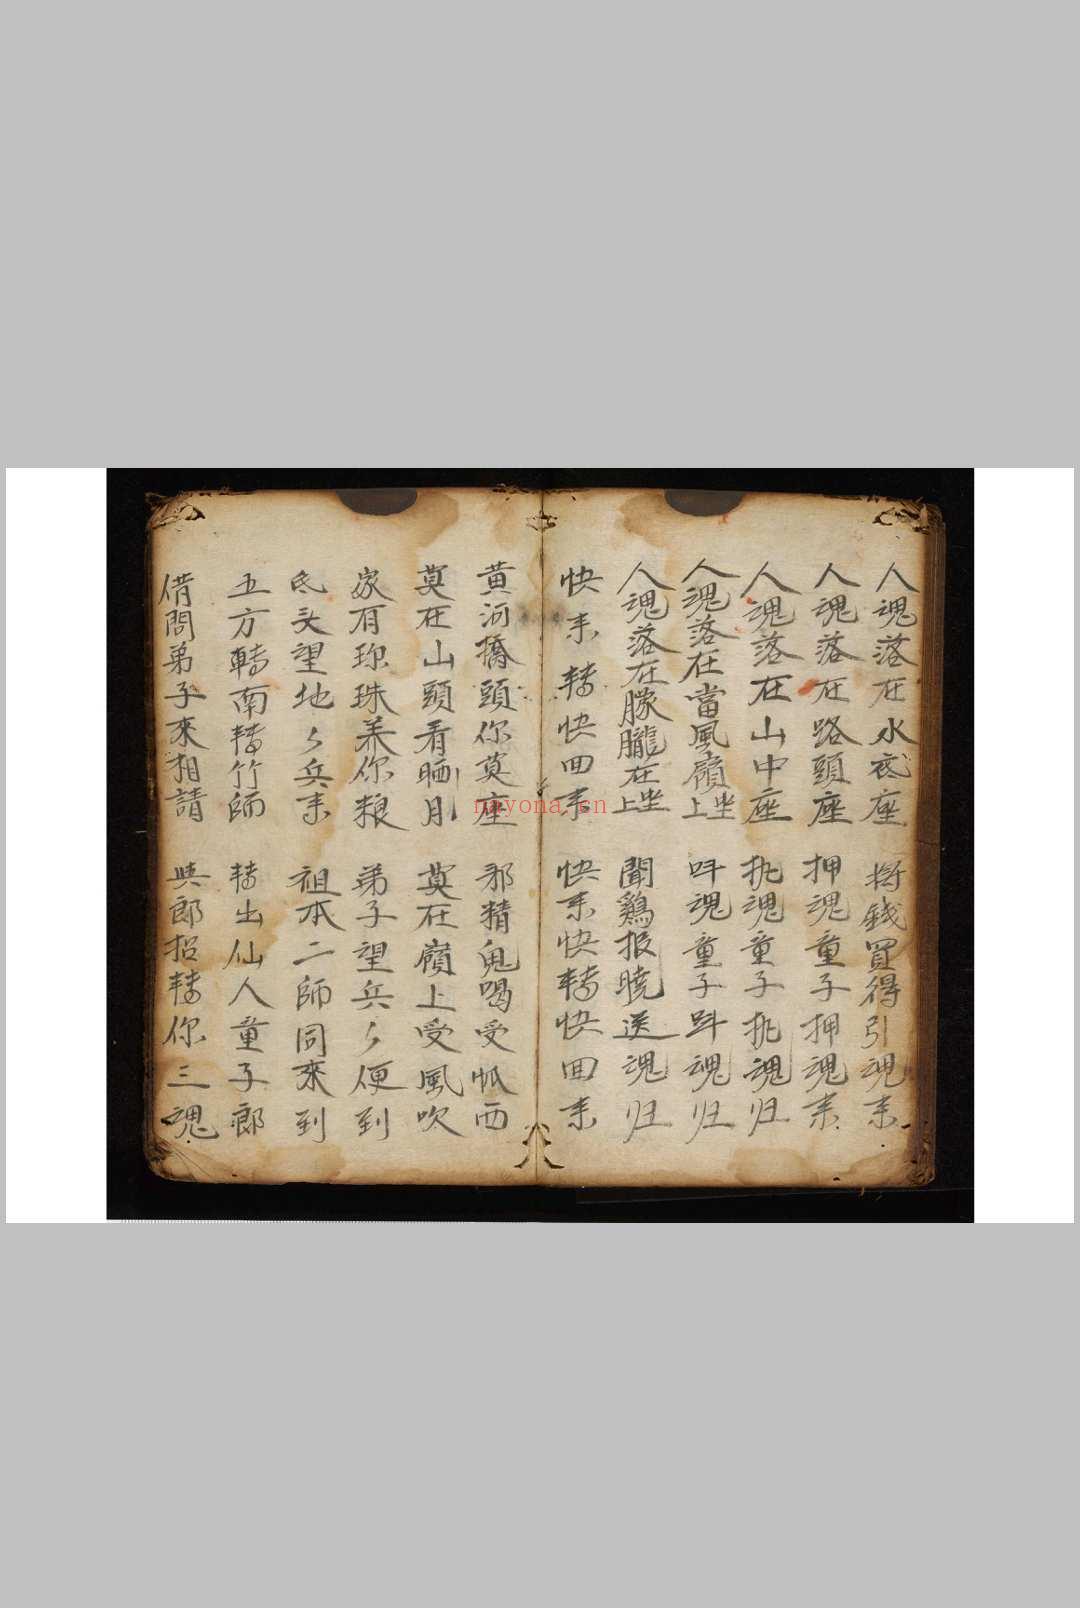 人魂落在水底座 將錢買得引魂來
人魂落在路頭座 押魂童子押魂來
人魂落在山中座 批魂童子批魂归
人魂落在當風嶺上坐 呌魂童子呌魂归
人魂落在朦朧在上坐 聞鷄报曉送魂归
快来轉快回来 快来快轉快回来
黄河橋頭你莫座 邪精鬼喝受 西
莫在山頭看晒月 莫在嶺上受風吹
家有珎珠养你粮 弟子望兵々便到
头望地々兵来 祖本二師同來到
五方轉南轉竹師 轉出仙人童子郎
借問弟子來相請 與郎招轉你三魂
nayona.cn